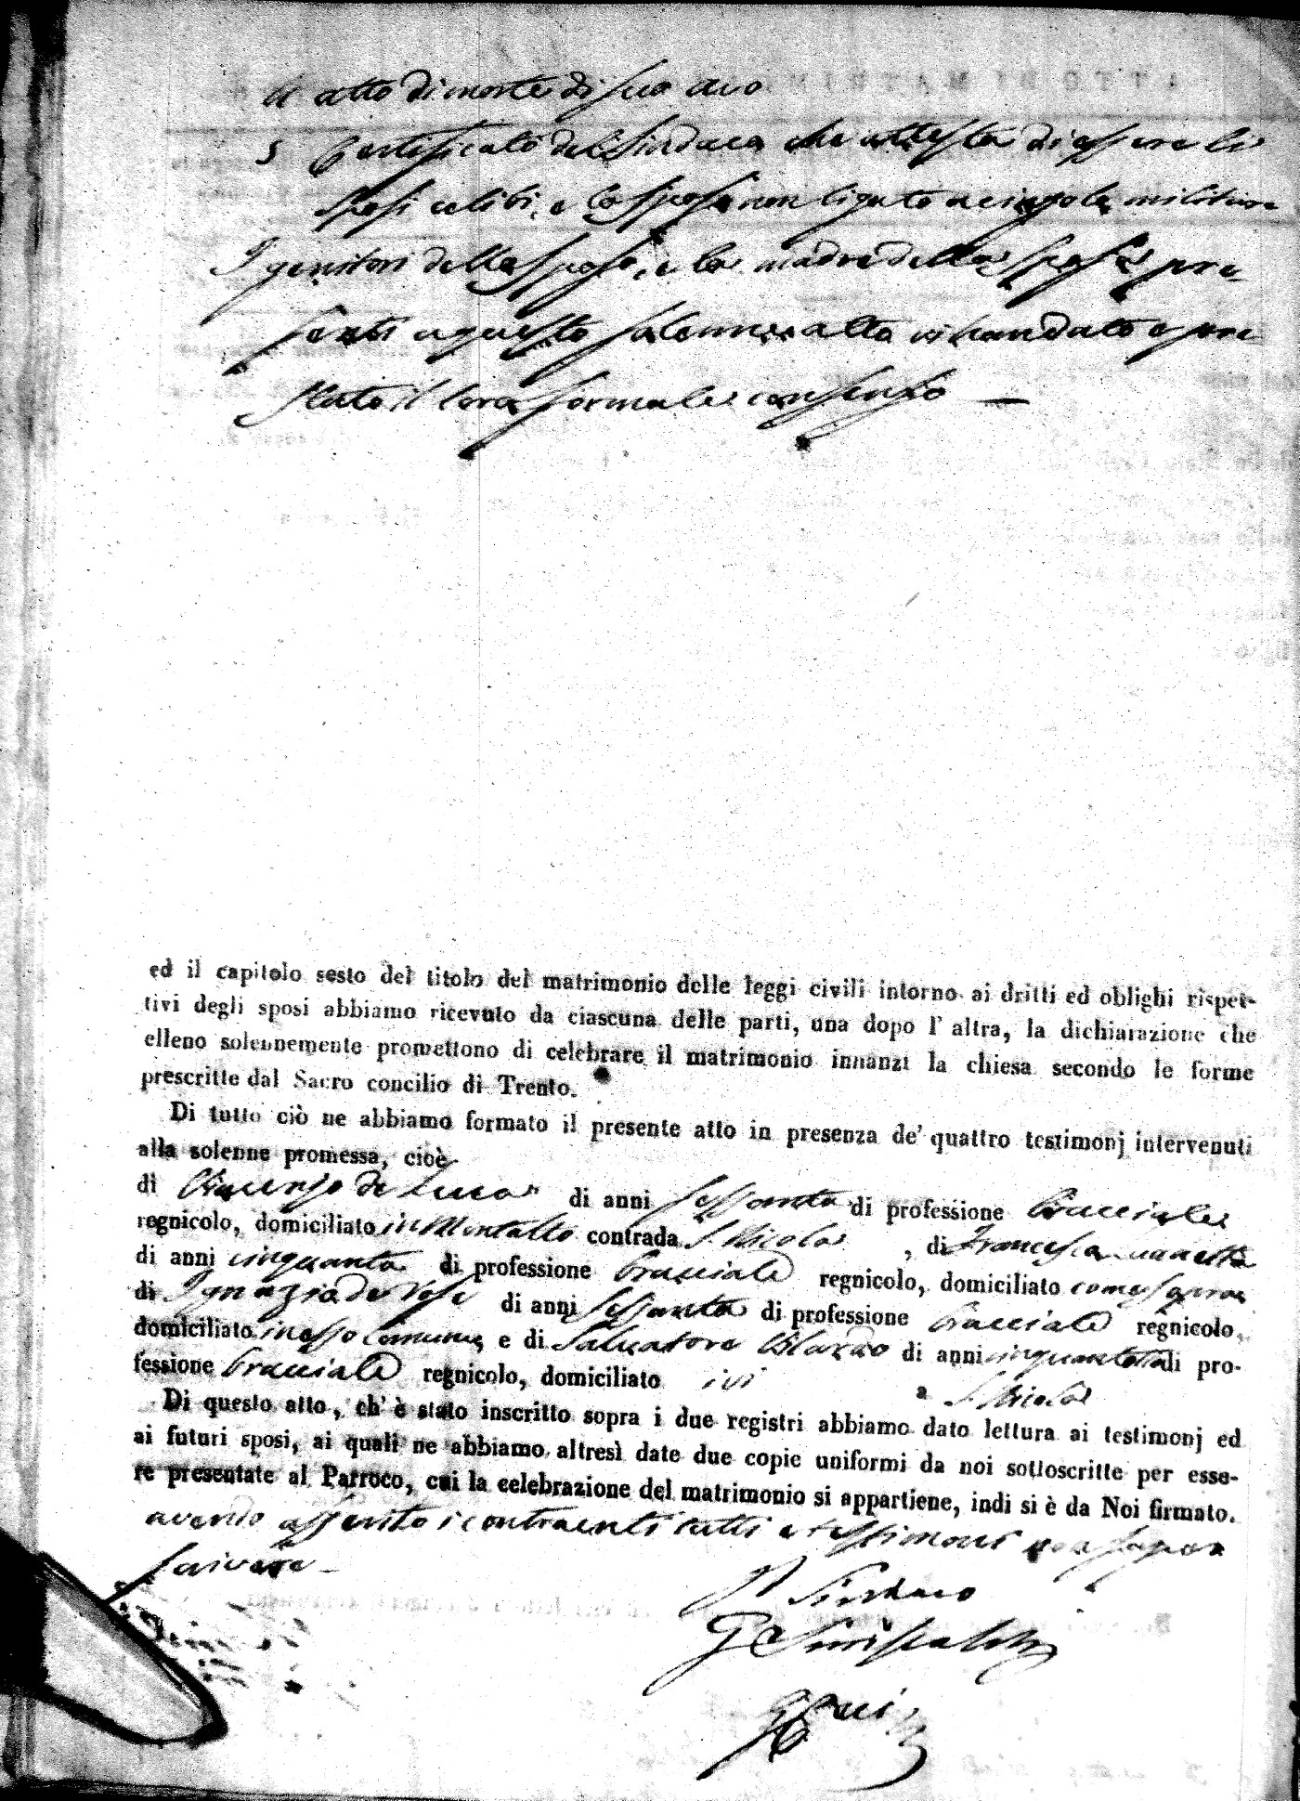 4 atto di morte di suo avo
5 Certificato del Sindaco che attesta di essere li
sposi celibi, e lo sposo non ligato a cingolo militare
I genitori dello sposo, e la madre della sposa pre-
senti a questo solenne atto vi han dato e pre-
stato il loro formale consenso —
ed il capitolo sesto del titolo del matrimonio delle leggi civili intorno ai dritti ed oblighi rispet-
tivi degli sposi abbiamo ricevuto da ciascuna delle parti, una dopo l' altra, la dichiarazione che
elleno solennemente promettono di celebrare il matrimonio innanzi la chiesa secondo le forme
prescritte dal Sacro concilio di Trento.
Di tutto ciò ne abbiamo formato il presente atto in presenza de' quattro testimonj intervenuti
alla solenne promessa, cioè
di Vincenzo de Luca di anni sessanta di professione bracciale
regnicolo, domiciliato in Montalto contrada S. Nicola , di Francesco
di anni cinquanta di professione bracciale regnicolo, domiciliato come sopra
di Ignazio de Rose di anni sessanta di professione bracciale regnicolo,
domiciliato in esso comune e di Salvatore di anni cinquanta di pro-
fessione bracciale regnicolo, domiciliato ivi a S. Nicola
Di questo atto, ch' è stato inscritto sopra i due registri abbiamo dato lettura ai testimonj ed
ai futuri sposi, ai quali ne abbiamo altresì date due copie uniformi da noi sottoscritte per esse-
re presentate al Parroco, cui la celebrazione del matrimonio si appartiene, indi si è da Noi firmato.
avendo asserito i contraenti tutti e testimoni non saper
scrivere —
Il Sindaco